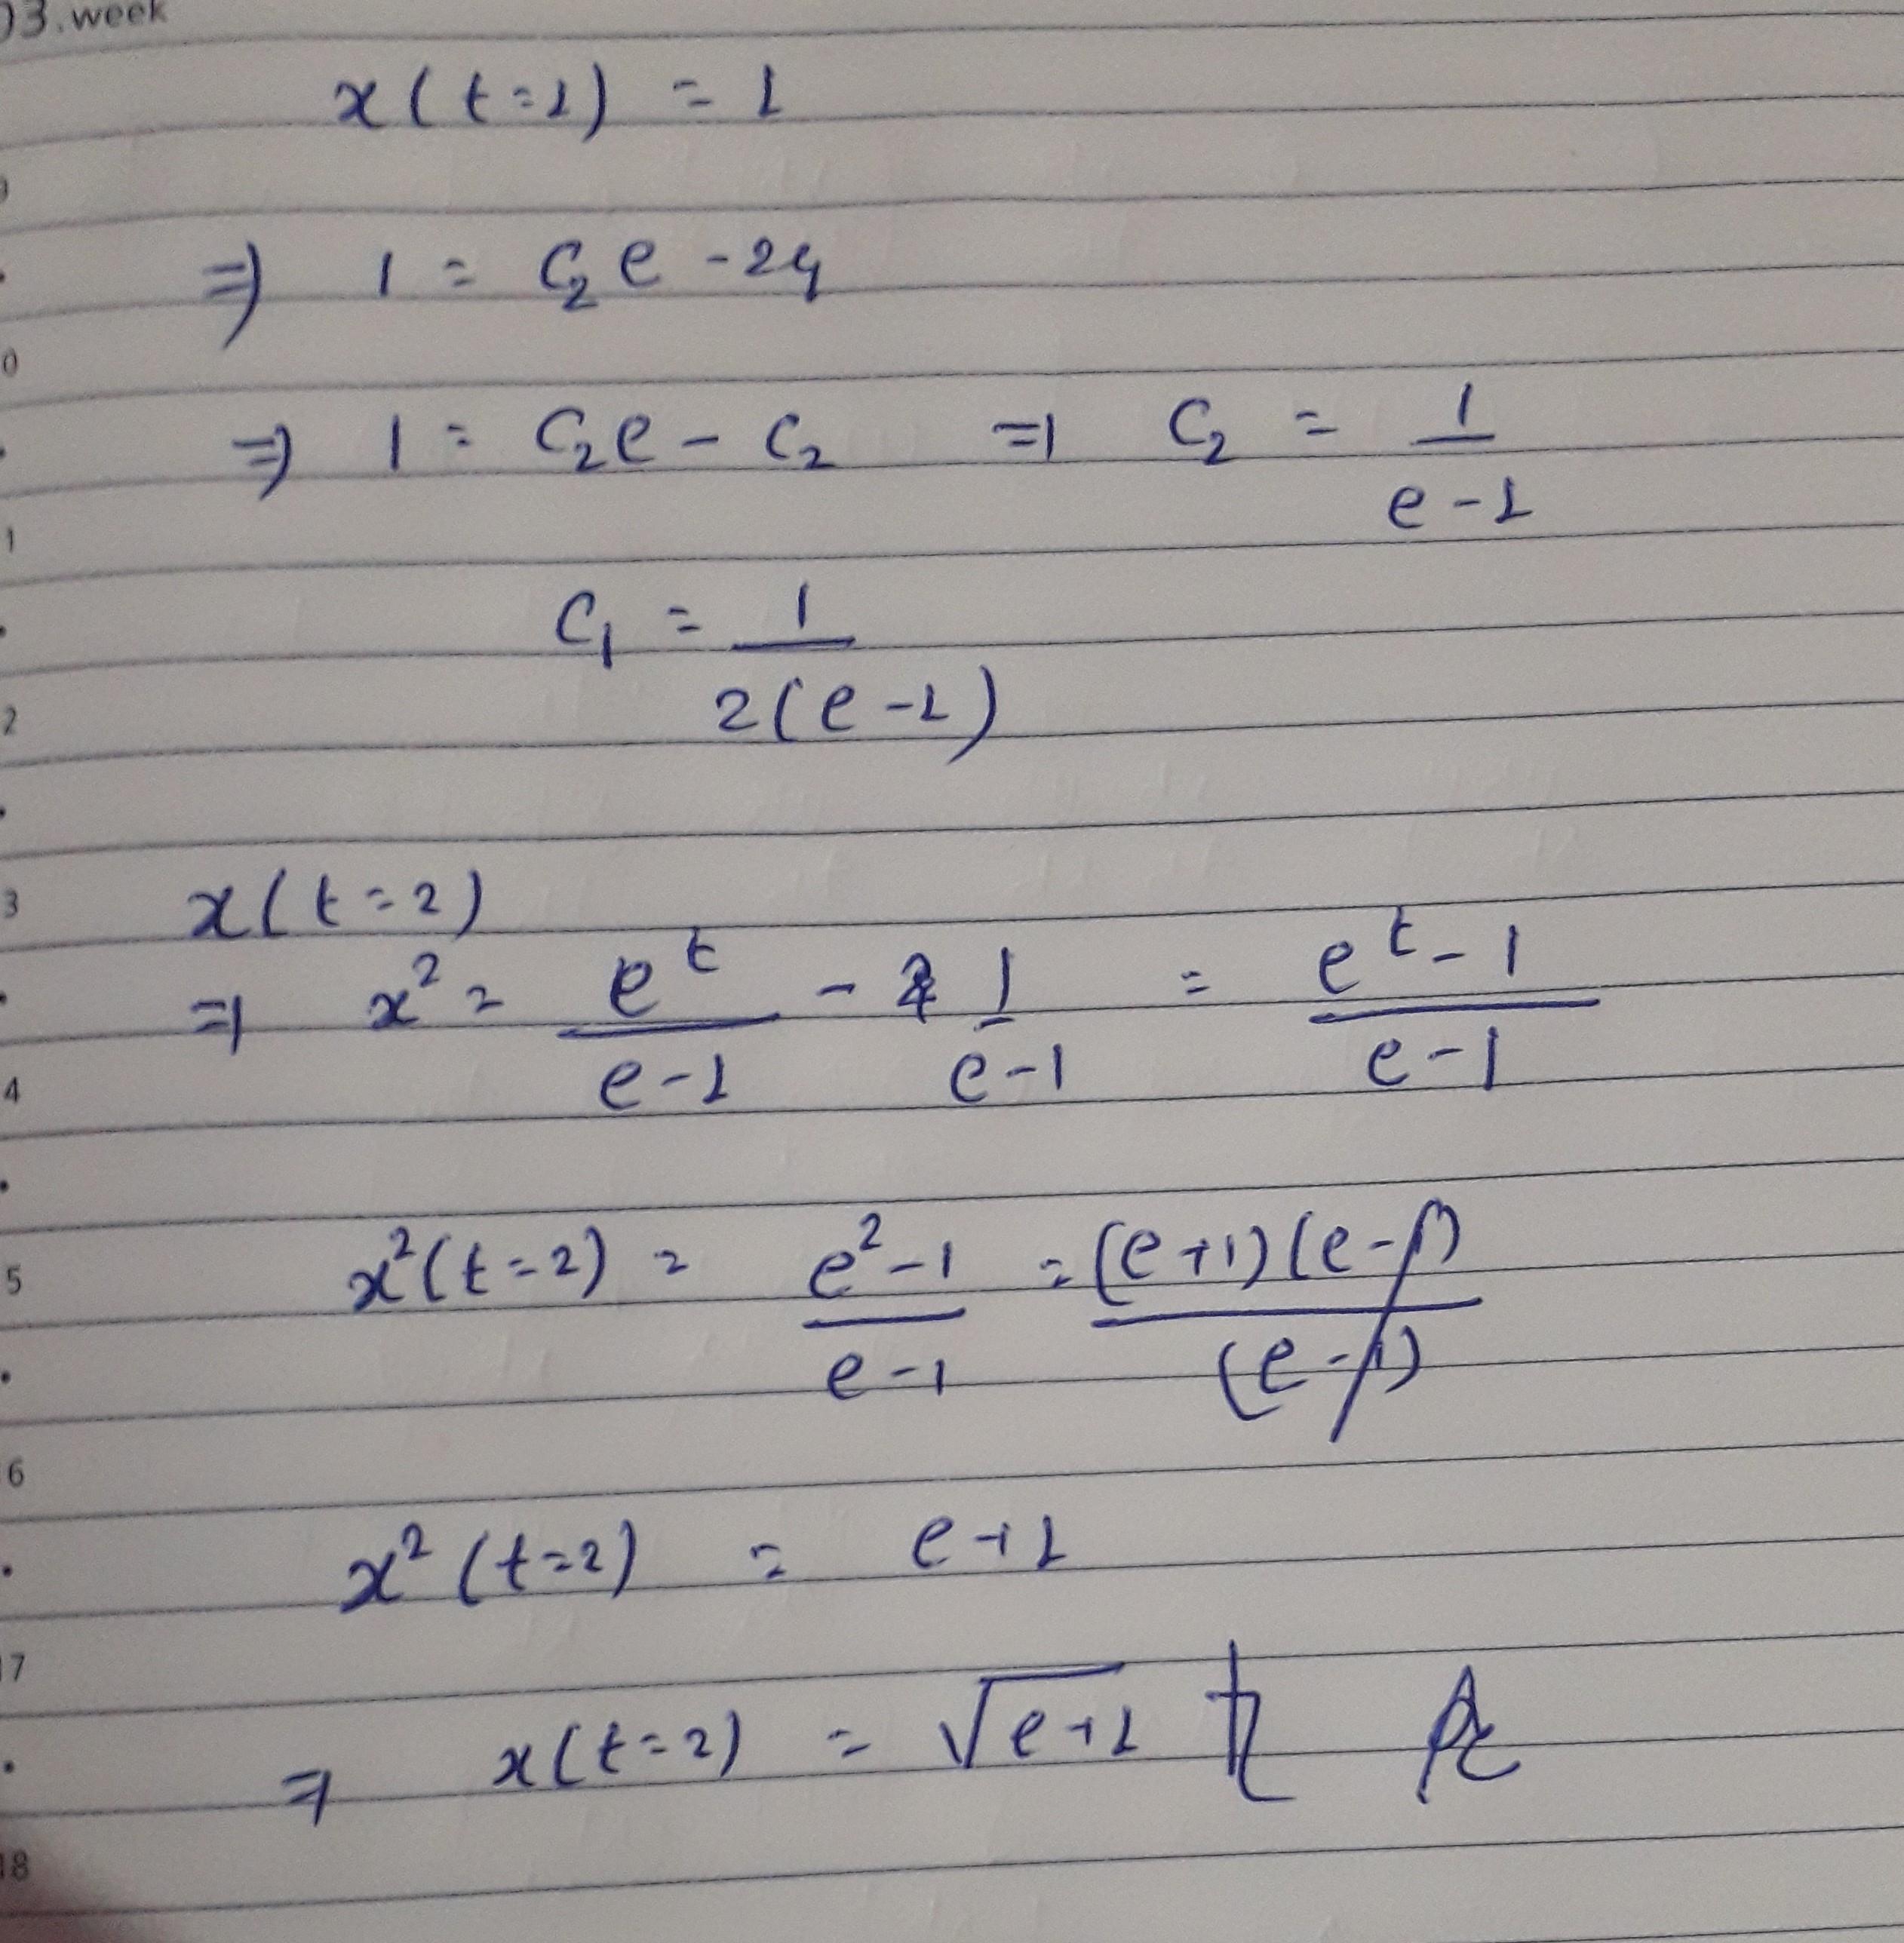 03.week
x(t=1) = 1
⇒ 1 = C₂e - 2C₁
⇒ 1 = C₂e - C₂ ⇒ C₂ = 1/(e-1)
C₁ = 1/(2(e-1))
x(t=2)
⇒ x² = e^t/(e-1) - 1/(e-1) = (e^t - 1)/(e-1)
x²(t=2) = (e²-1)/(e-1) = (e+1)(e-1)/(e-1)
x²(t=2) = e+1
⇒ x(t=2) = √(e+1)